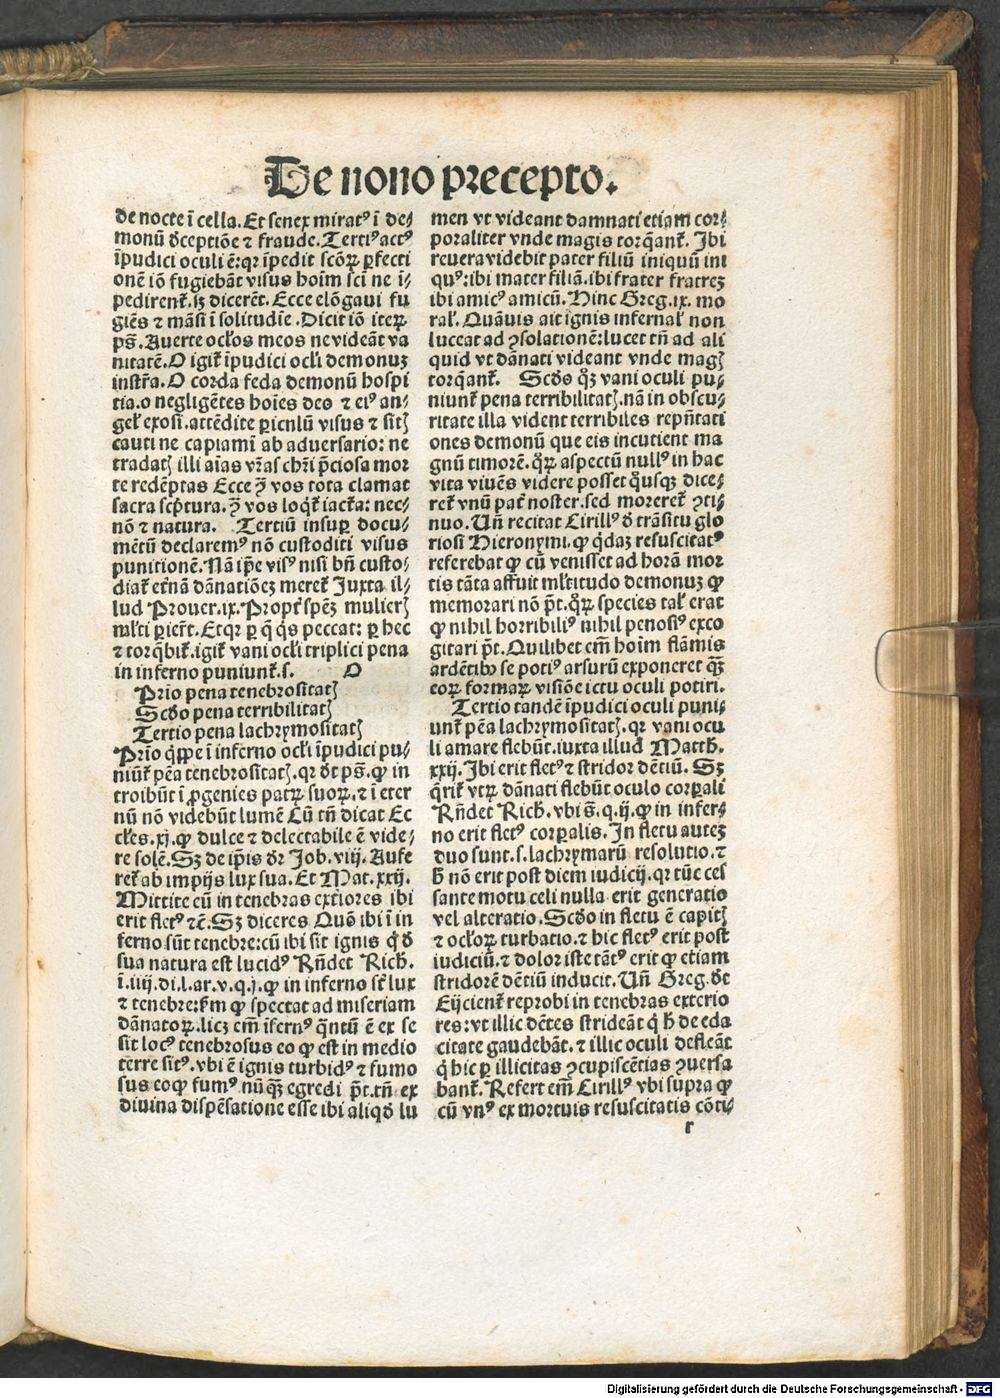 De nono precepto.
de nocte ī cella. Et senex miratꝰ ī de⸗
monū d̄ceptiōe ⁊ fraude. Tertiꝰ actꝰ
īpudici oculi ē: qꝛ īpedit scōꝝ ꝑfecti
onē iō fugiebāt visus hoīm sci ne ī⸗
pedirent̄. sꝫ dicerēt. Ecce elōgaui fu
giēs ⁊ māsi ī solitudīe. Dicit iō iteꝝ
ps̄. Auerte oc̄los meos ne videāt va
nitatē. O igit̄ īpudici oc̄li demonuꝫ
instr̄a. O corda feda demonū hospi
tia. o negligētes hoīes deo ⁊ eiꝰ an⸗
gel̄ exosi. attēdite ꝑicl̄m visus ⁊ sitꝭ
cauti ne capiamī ab aduersario: ne
tradatꝭ illi aīas vr̄as chr̄i p̄ciosa mor
te redēptas Ecce ꝙ̄ vos tota clamat
sacra scp̄tura. ꝙ̄ vos loq̄t̄ iact̄a: nec⸗
nō ⁊ natura. Tertiū insuꝑ docu⸗
mētū declaremꝰ nō custoditi visus
punitionē. Nā ip̄e visꝰ nisi bn̄ custo⸗
diat̄ et̄nā dānatiōeꝫ meret̄ Juxta il⸗
lud Prouer. ix. Propt̄ spēꝫ mulierꝭ
ml̄ti ꝑierūt. Et qꝛ ꝑ q̄ q̇s peccat: ꝑ hec
⁊ torq̄bit̄. igit̄ vani oc̄li triplici pena
in inferno puniunt̄. s. O
Prio pena tenebrositatꝭ
Scd̄o pena terribilitatꝭ
Tertio pena lachrymositatꝭ
Prīo q̇ꝑpe ī inferno oc̄li īpudici pu⸗
niūt̄ pēa tenebrositatꝭ. qꝛ d̄t ps̄. ꝙ in
troibūt ī ꝓgenies patꝝ suoꝝ. ⁊ ī eter
nū nō videbūt lumē Cū tn̄ dicat Ec
cl̄es. xj. ꝙ dulce ⁊ delectabile ē vide⸗
re solē. Sꝫ de ip̄is dr̄ Job. viij. Aufe
ret̄ ab impijs lux sua. Et Mat. xxij.
Mittite eū in tenebras ext̄iores ibi
erit fletꝰ ⁊c̄. Sꝫ diceres Quō ibi ī in
ferno sūt tenebre: cū ibi sit ignis q̇ d̄
sua natura est lucidꝰ Rn̄det Rich.
ī. iiij. di. l. ar. v. q. j. ꝙ in inferno st̄ lux
⁊ tenebre: fm̄ ꝙ spectat ad miseriam
dānatoꝝ. licꝫ em̄ īfernꝰ q̄ntū ē ex se
sit locꝰ tenebrosus eo ꝙ est in medio
terre sitꝰ. vbi ē ignis turbidꝰ ⁊ fumo
sus eoqꝫ fumꝰ nūq̄ꝫ egredi p̄t. tn̄ ex
diuina dispēsatione esse ibi aliqd̄ lu
men vt videant damnati etiam cor⸗
poraliter vnde magis torq̄ant̄. Ibi
reuera videbit pater filiū iniquū ini
quꝰ: ibi mater filiā. ibi frater fratreꝫ
ibi amicꝰ amicū. Hinc Greg. ix. mo
ral̄. Quāuis ait ignis infernal̄ non
luceat ad ꝯsolationē: lucet tn̄ ad ali
quid vt dānati videant vnde magꝭ
torq̄ant̄. Scd̄o q̇ꝫ vani oculi pu⸗
niunt̄ pena terribilitatꝭ. nā in obscu⸗
ritate illa vident terribiles repn̄tati
ones demonū que eis incutient ma
gnū timorē. qͦꝝ aspectū nullꝰ in hac
vita viuēs videre posset q̇usqꝫ dice⸗
ret̄ vnū pat̄ noster. sed moreret̄ ꝯti⸗
nuo. Un̄ recitat Cirillꝰ d̄ trāsitu glo
riosi Hieronymi. ꝙ q̇daꝫ resuscitatꝰ
referebat ꝙ cū venisset ad horā mor
tis tāta affuit ml̄titudo demonuꝫ ꝙ
memorari nō p̄t. qͦꝝ species tal̄ erat
ꝙ nihil horribiliꝰ nihil penosiꝰ exco
gitari p̄t. Quilibet em̄ hoīm flāmis
ardētibꝰ se potiꝰ arsurū exponeret q̄ꝫ
eoꝝ formaꝝ visiōe ictu oculi potiri.
Tertio tandē īpudici oculi puni⸗
unt̄ pēa lachrymositatꝭ. qꝛ vani ocu
li amare flebūt. iuxta illud Matth.
xxij. Ibi erit fletꝰ ⁊ stridor dētiū. Sꝫ
q̄rit̄ vtꝝ dānati flebūt oculo corꝑali
Rn̄det Rich. vbi s̄. q. ij. ꝙ in infer⸗
no erit fletꝰ corꝑalis. In fletu auteꝫ
duo sunt. s. lachrymarū resolutio. ⁊
h̄ nō erit post diem iudicij. qꝛ tūc ces
sante motu celi nulla erit generatio
vel alteratio. Scd̄o in fletu ē capitꝭ
⁊ oc̄loꝝ turbatio. ⁊ hic fletꝰ erit post
iudiciū. ⁊ dolor iste tātꝰ erit ꝙ etiam
stridorē dētiū inducit. Un̄ Greg. d̄t
Eijcient̄ reprobi in tenebras exterio
res: vt illic dētes strideāt q̇ h̄ de eda
citate gaudebāt. ⁊ illic oculi defleāt
q̇ hic ꝑ illicitas ꝯcupiscētias ꝯuersa
bant̄. Refert em̄ Cirillꝰ vbi supra ꝙ
cū vnꝰ ex mortuis resuscitatis cōti⸗
r
Digitalisierung gefördert durch die Deutsche Forschungsgemeinschaft - DFG